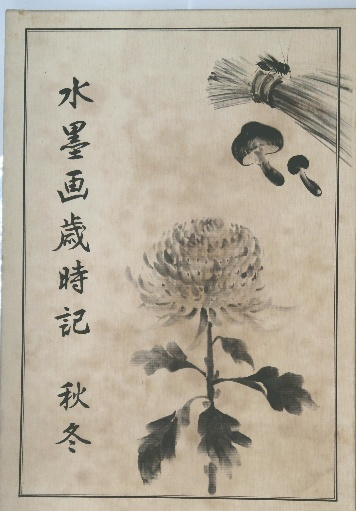 水墨画歳時記 秋冬